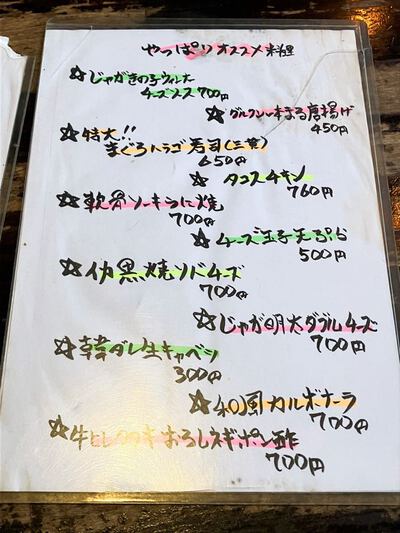 やっぱりオススメ料理
☆じゃがきの子ウィンナー
チーズソース 700円
☆グルクン一本まる唐揚げ
450円
☆特大!!
まぐろトラゴ寿司(三貫)
650円
☆タコスチキン
760円
☆軟骨ソーキらに焼
700円
☆チーズ玉子天ぷら
500円
☆イカ黒焼ソバチーズ
700円
☆じゃが明太ダブルチーズ
700円
☆韓ダレ生キャベツ
300円
☆和風カルボナーラ
700円
☆牛と おろしネギポン酢
700円